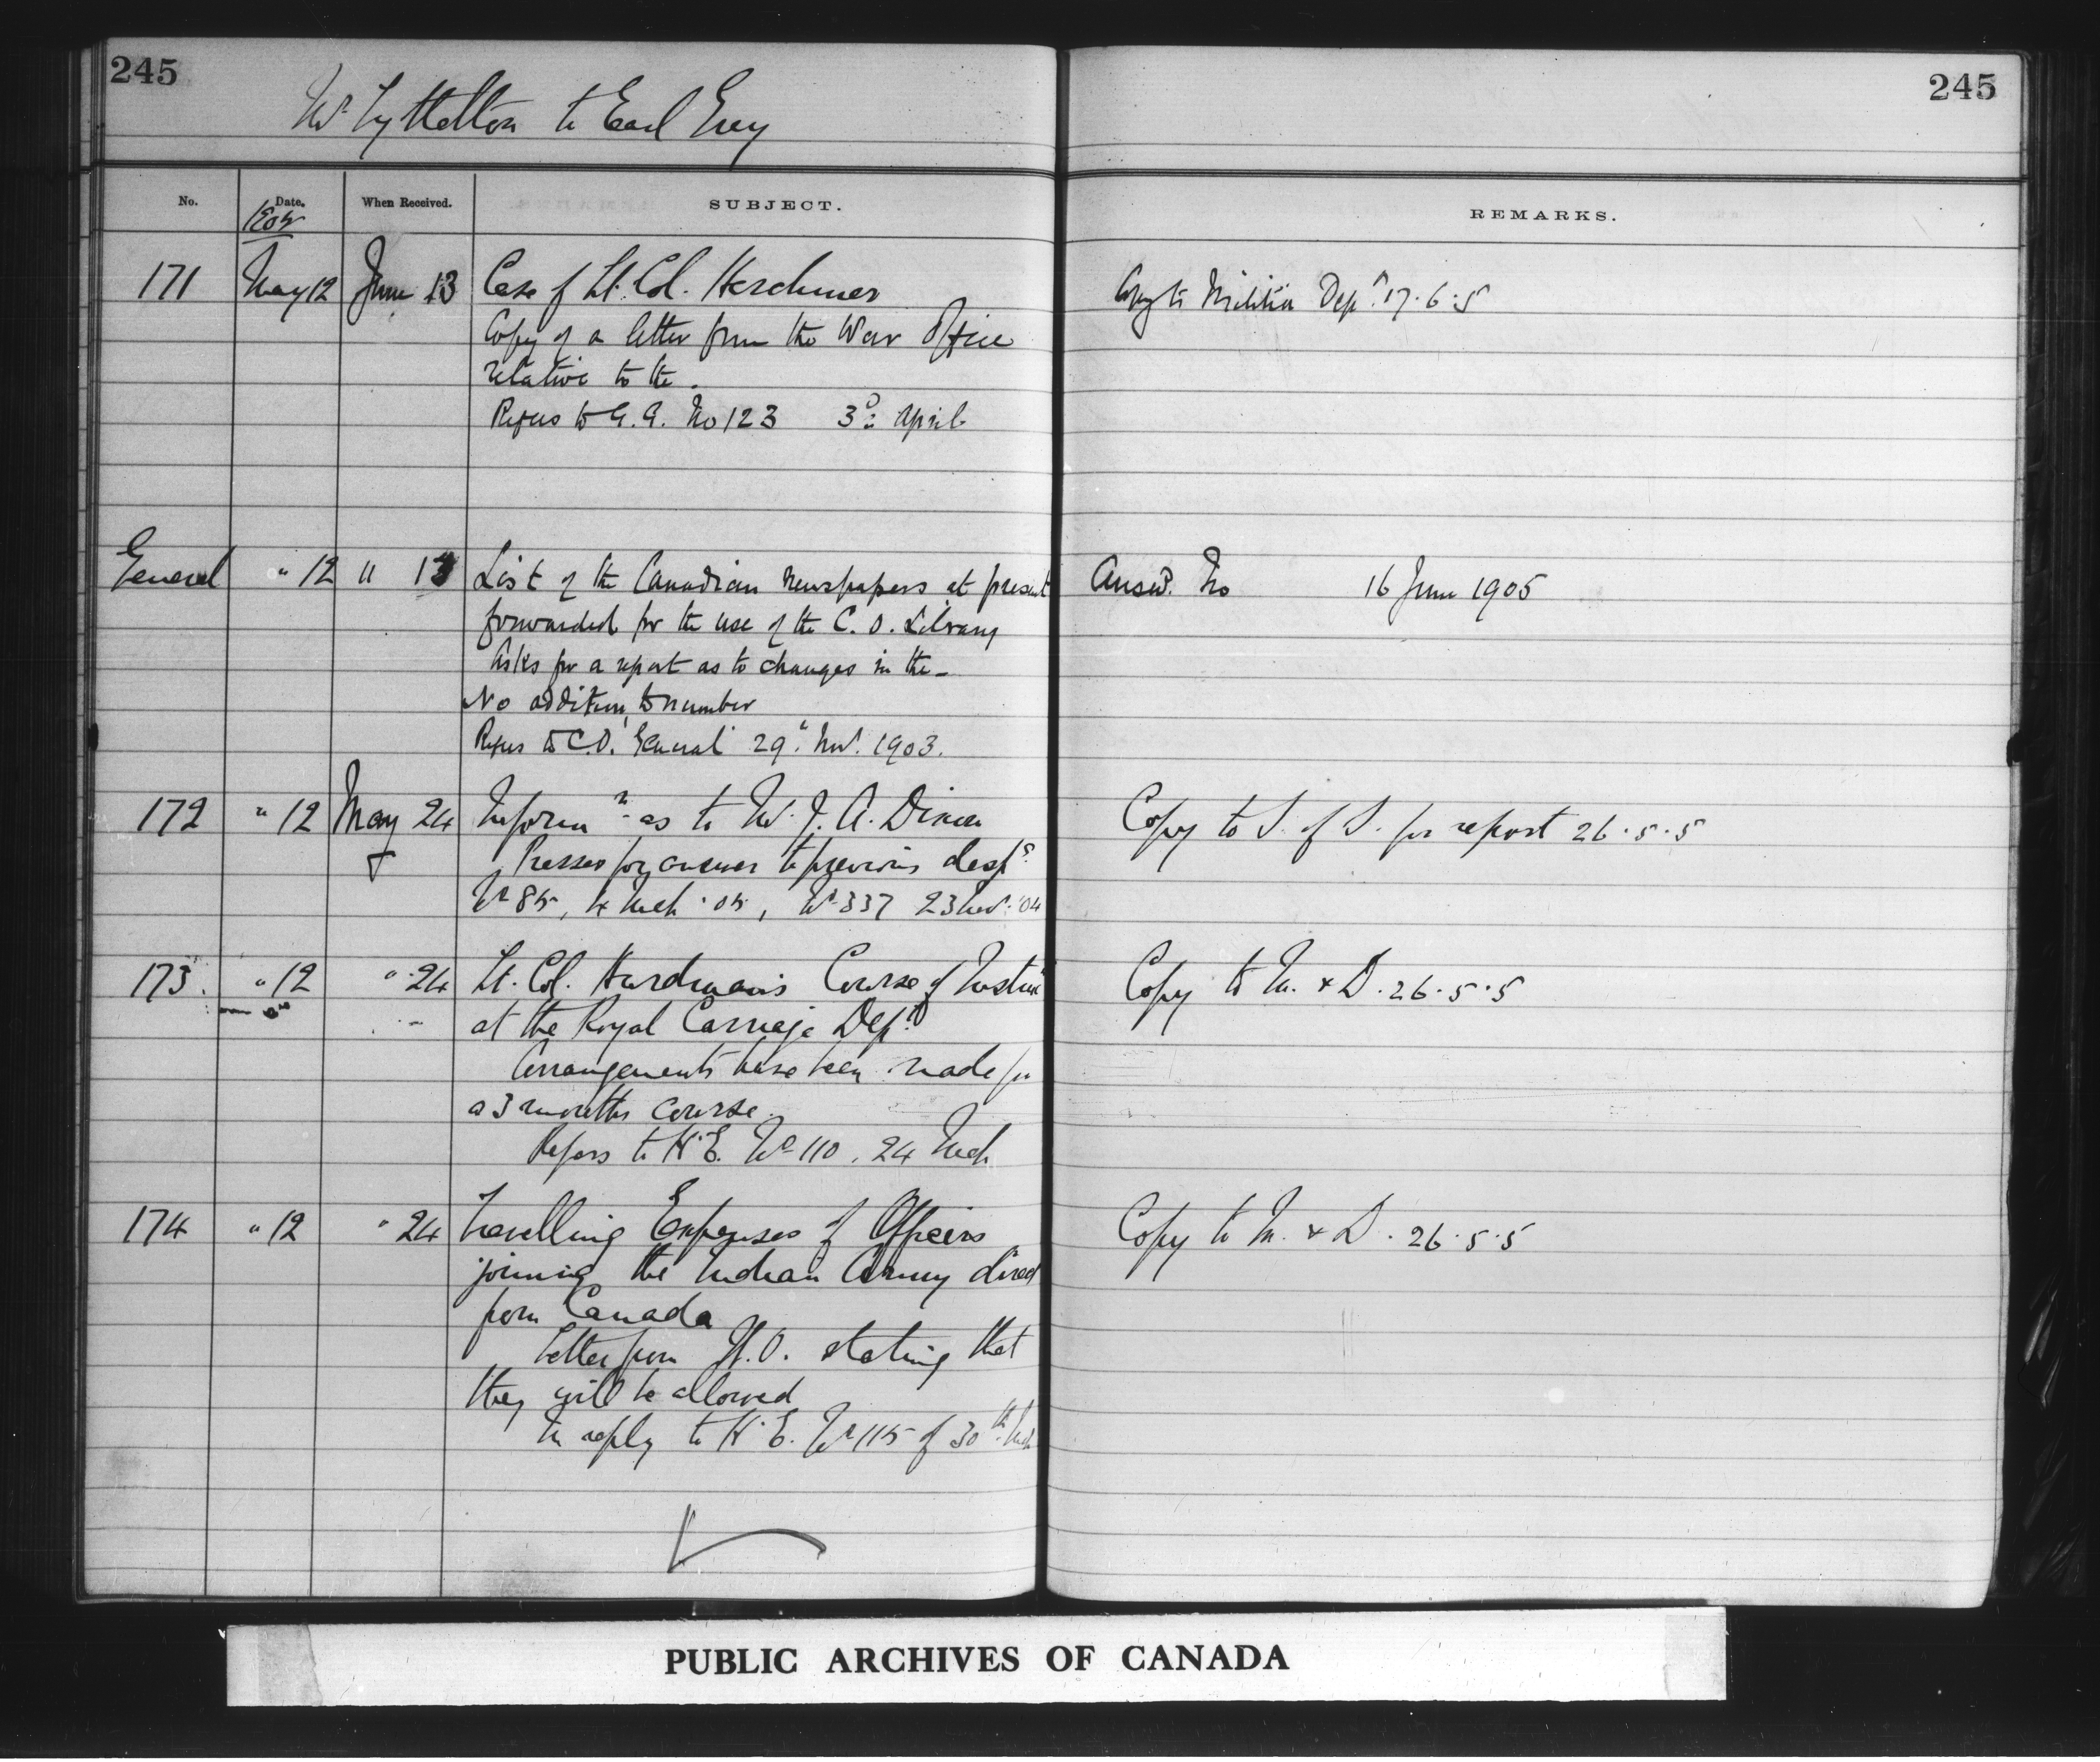 245
245
Mr Lyttelton to Earl Grey
No. Date. When Received. SUBJECT. REMARKS.
1905
171 May 12 June 13 Case of Lt. Col. Herchmer Copy to Militia Dept. 17.6.5
Copy of a letter from the War Office
relative to the.
Refers to G.G. No 123 3rd April
General " 12 " 13 List of the Canadian Newspapers at present Answd. No 16 June 1905
forwarded for the use of the C.O. Library
Asks for a report as to changes in the-
No addition to number
Refers to C.O. General 29 Nov. 1903.
172 " 12 May 24 Informn as to Mr. J. A. Dixon Copy to S. of S. for report 26.5.5
Presses for answer to previous desps
No 85, 4 Mch '05, No 337 23 Nov. '04
173. " 12 " 24 Lt. Col. Hurdman's Course of Copy to M. & D. 26.5.5
at the Royal Carriage Dept
Arrangements have been made for
a 3 months course.
Refers to H.E. No 110. 24 Mch
174 " 12 " 24 Travelling Expenses of Officers Copy to M. & D. 26.5.5
joining the Indian Army direct
from Canada
Letter from W.O. stating that
they will be allowed
In reply to H.E. No 115 of 30th Mch
PUBLIC ARCHIVES OF CANADA